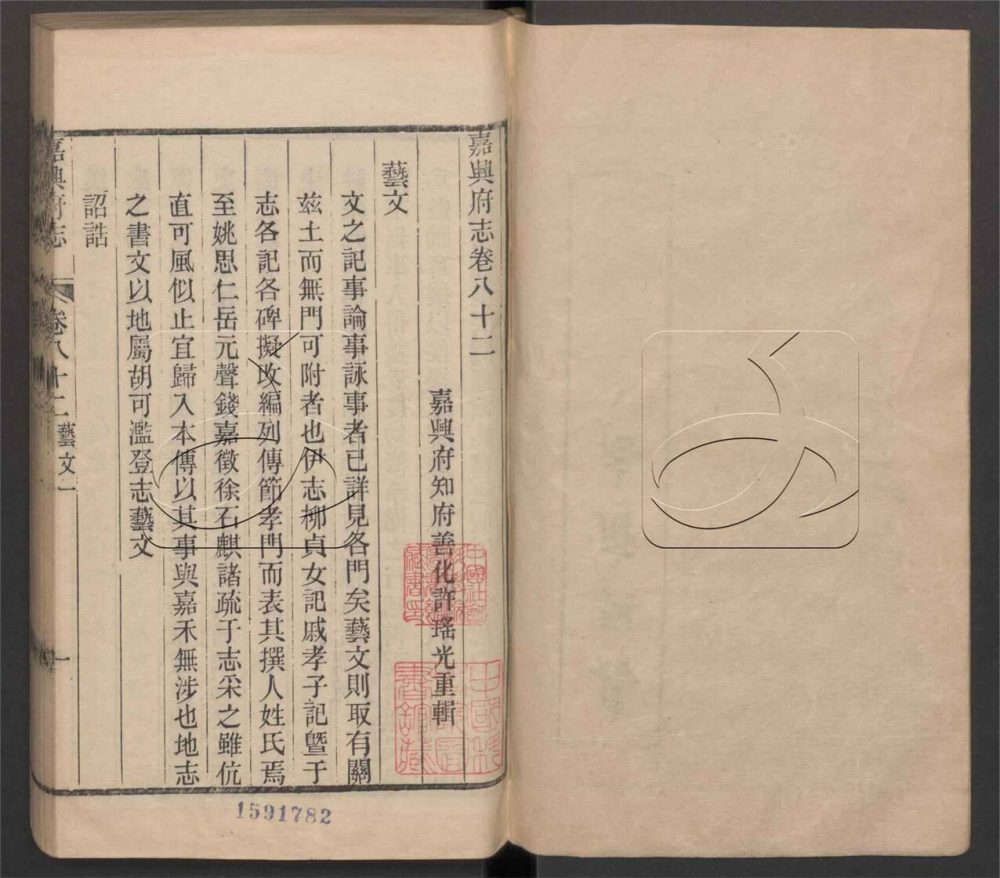 嘉興府志卷八十二
嘉興府知府善化許瑤光重輯
藝文
文之記事論事詠事者已詳見各門矣藝文則取有關
茲土而無門可附者也伊志柳貞女記戚孝子記暨于
志各記各碑擬改編列傳節孝門而表其撰人姓氏焉
至姚思仁岳元聲錢嘉徵徐石麒諸疏于志采之雖伉
直可風似止宜歸入本傳以其事與嘉禾無涉也地志
之書文以地屬胡可濫登志藝文
詔誥
嘉興府志
卷八十二藝文一
一
1591782